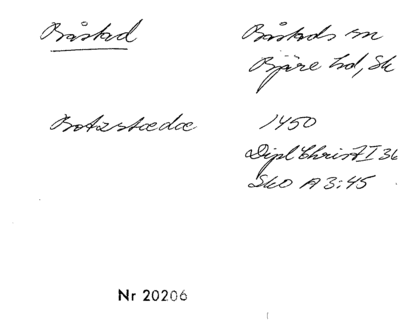 Båstad
Båstads sn
Bjäre hd, Sk
Botzstædæ
1450
Dipl Christ I 36
SkO A 3:45
Nr 20206